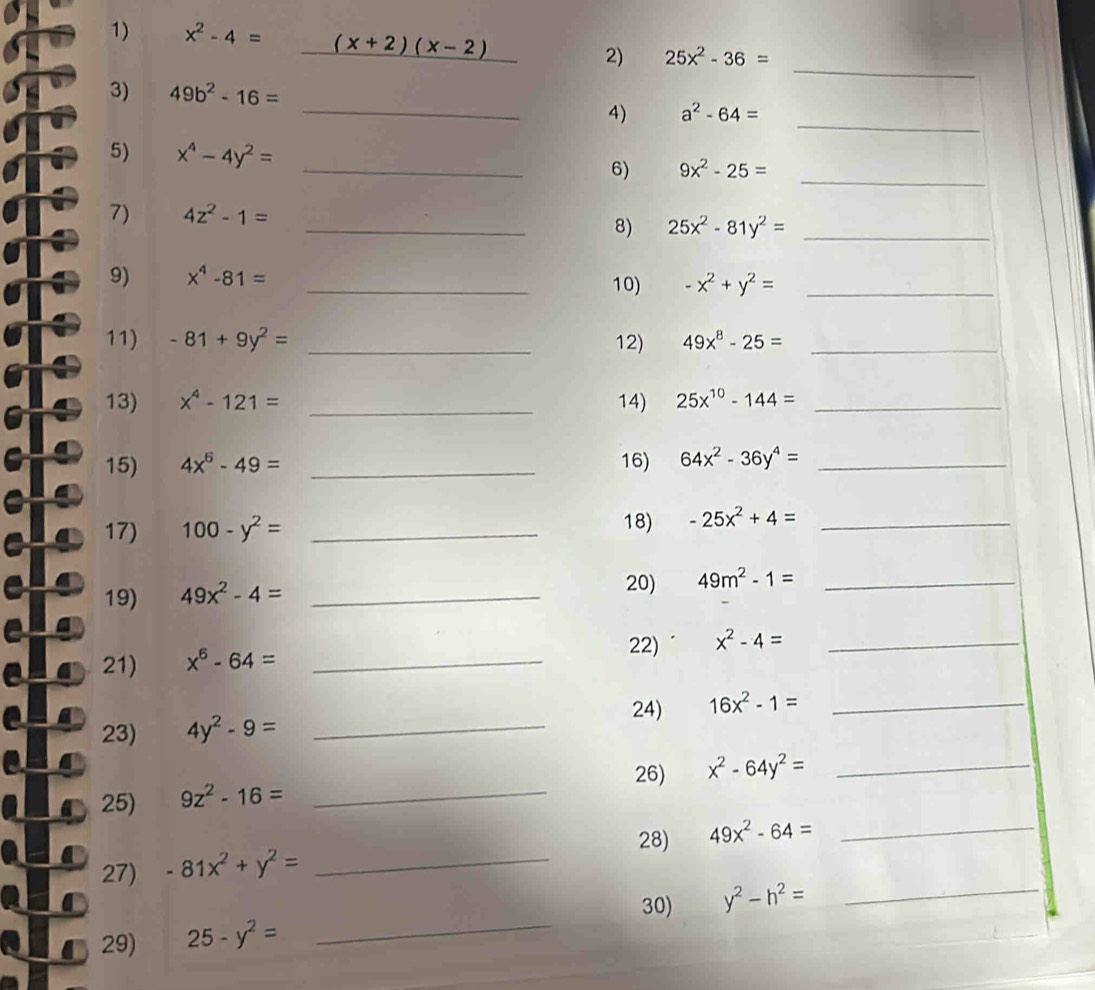 1) x² - 4 = (x + 2)(x - 2)
2) 25x² - 36 =
3) 49b² - 16 =
4) a² - 64 =
5) x⁴ - 4y² =
6) 9x² - 25 =
7) 4z² - 1 =
8) 25x² - 81y² =
9) x⁴ - 81 =
10) - x² + y² =
11) - 81 + 9y² =
12) 49x⁸ - 25 =
13) x⁴ - 121 =
14) 25x¹⁰ - 144 =
15) 4x⁶ - 49 =
16) 64x² - 36y⁴ =
17) 100 - y² =
18) - 25x² + 4 =
19) 49x² - 4 =
20) 49m² - 1 =
21) x⁶ - 64 =
22) x² - 4 =
23) 4y² - 9 =
24) 16x² - 1 =
25) 9z² - 16 =
26) x² - 64y² =
27) - 81x² + y² =
28) 49x² - 64 =
29) 25 - y² =
30) y² - h² =